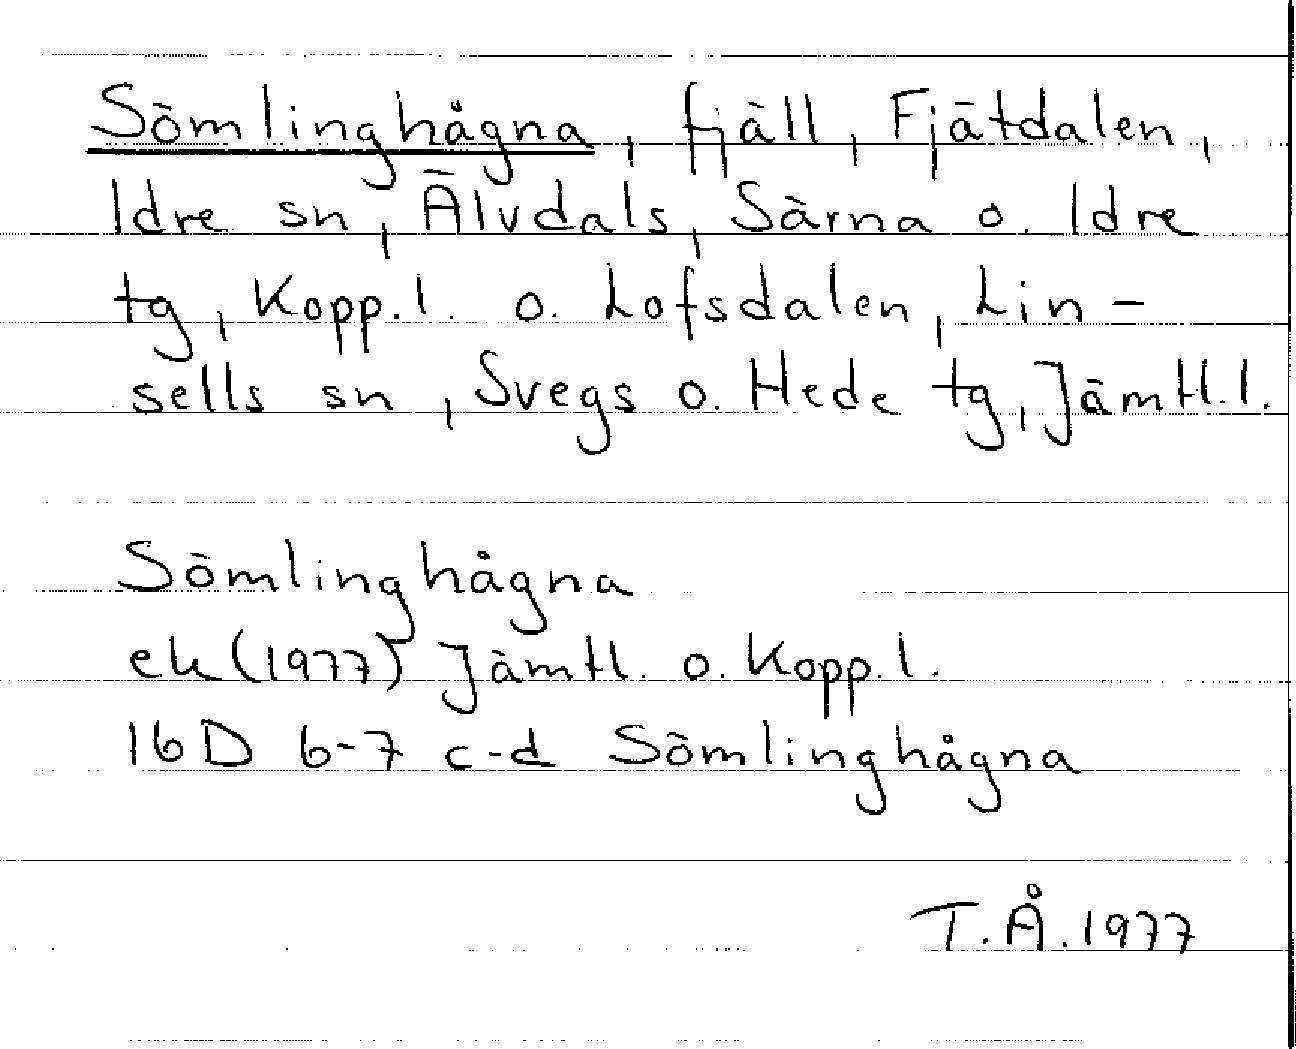 Sömlinghågna, fjäll, Fjätdalen,
Idre sn, Älvdals, Särna o. Idre
tg, Kopp.l. o. Lofsdalen, Lin-
sells sn, Svegs o. Hede tg, Jämtl.l.
Sömlinghågna
ek (1977) Jämtl. o. Kopp.l.
16D 6-7 c-d Sömlinghågna
T.Å.1977